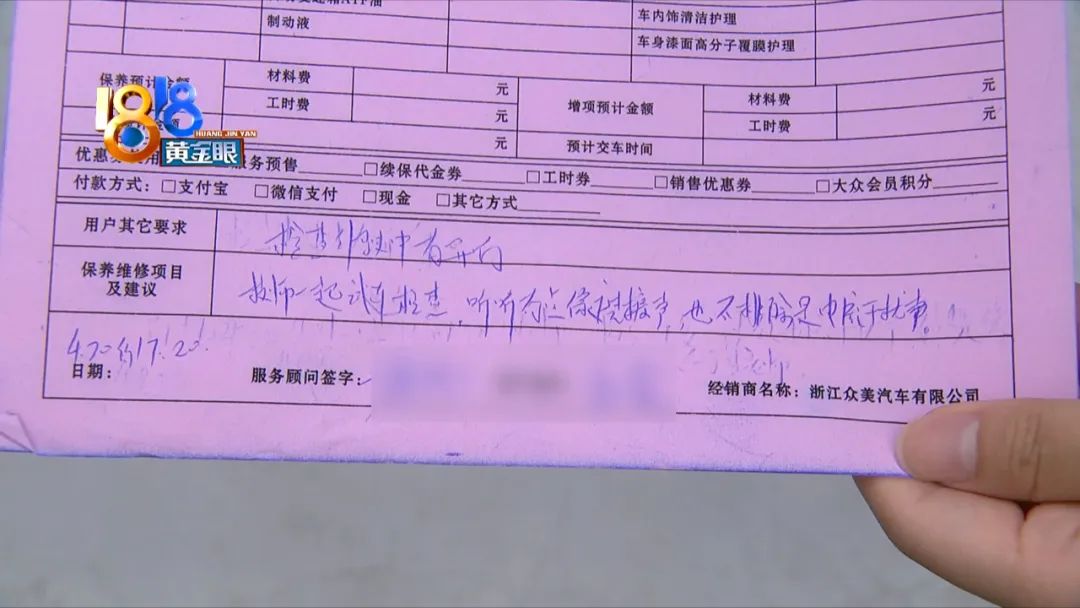 制动液
车内饰清洁护理
车身漆面高分子覆膜护理
保养预计金额
材料费
元
工时费
元
元
增项预计金额
材料费
元
工时费
元
预计交车时间
1818
HUANG JIN YAN
黄金眼
服务预售
□续保代金券
□工时券
□销售优惠券
□大众会员积分
付款方式：□支付宝 □微信支付 □现金 □其它方式
用户其它要求
检查行驶中有异响
保养维修项目
及建议
技师一起试车检查，听听有点像摩擦声，也不排除是电磁干扰声
4.20 17.20
日期：
服务顾问签字：
经销商名称：浙江众美汽车有限公司